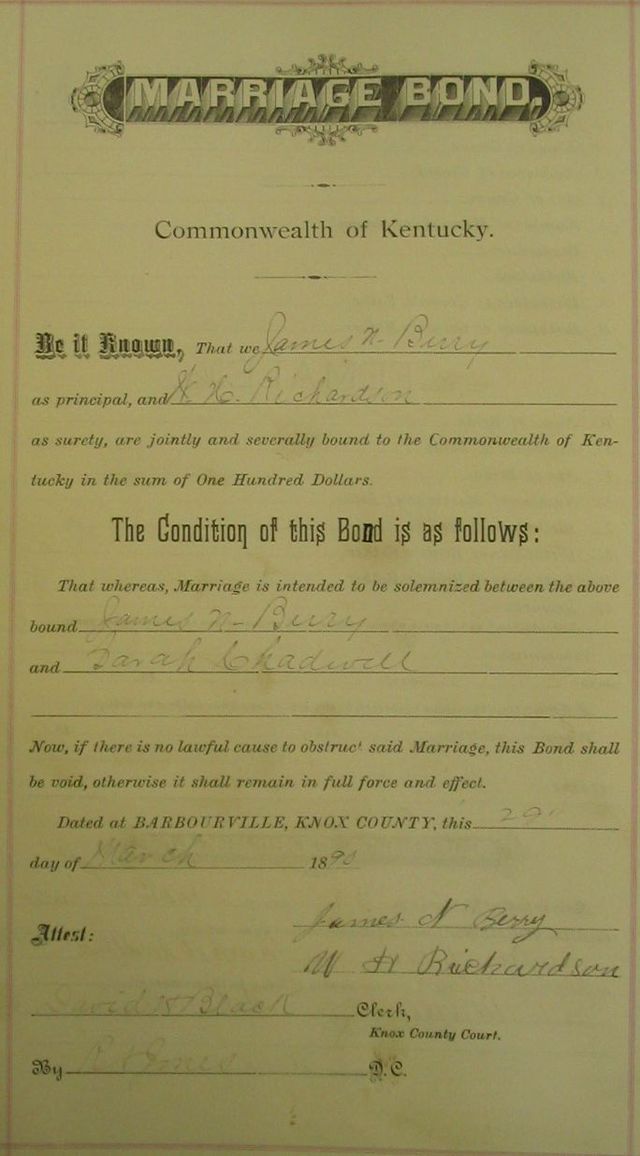 MARRIAGE BOND.
Commonwealth of Kentucky.
Be it Known, That we James N. Berry
as principal, and W. H. Richardson
as surety, are jointly and severally bound to the Commonwealth of Ken-
tucky in the sum of One Hundred Dollars.
The Condition of this Bond is as follows:
That whereas, Marriage is intended to be solemnized between the above
bound James N. Berry
and Sarah Chadwell
Now, if there is no lawful cause to obstruct said Marriage, this Bond shall
be void, otherwise it shall remain in full force and effect.
Dated at BARBOURVILLE, KNOX COUNTY, this 29
day of March 1890
James N Berry
Attest:
W H Richardson
David Black Clerk,
Knox County Court.
By D.C.